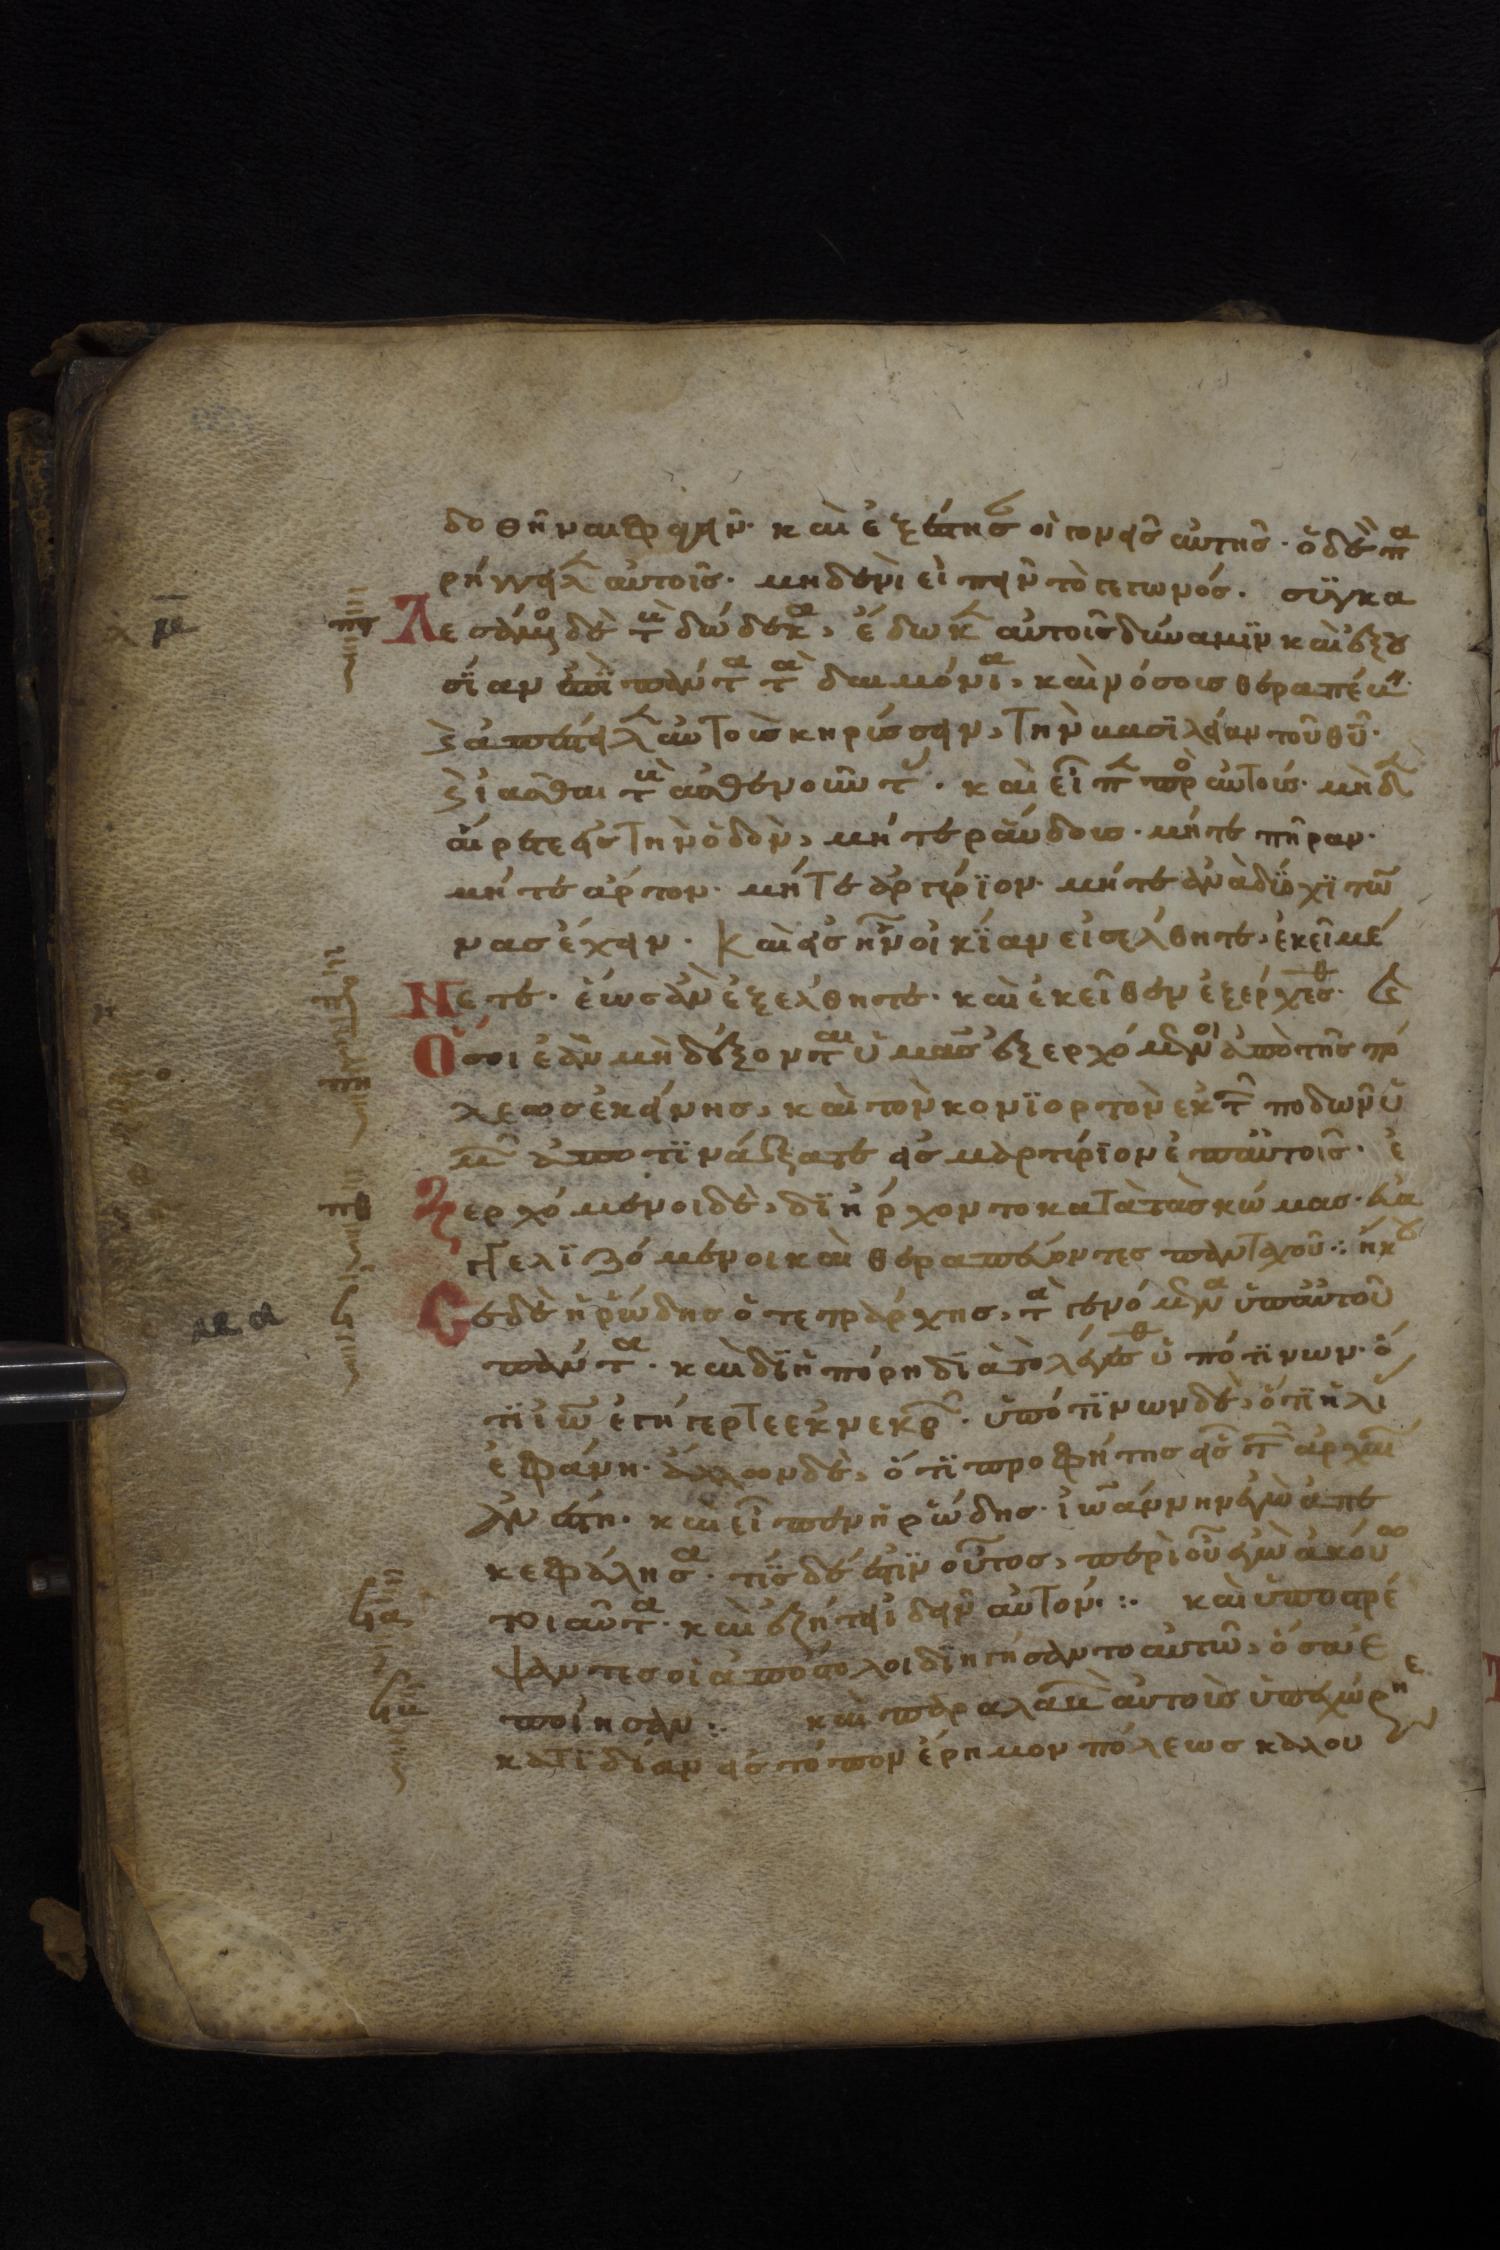 δοθῆναι φαγεῖν· καὶ ἐξέστησ οἱ γονεῖσ αὐτῆσ· ὁ δὲ πα
ρήγγειλ αὐτοῖσ· μηδενὶ εἰπεῖν τὸ γεγωνόσ· συγκα
Λεσάμενος δὲ τοὺ δώδεκα, ἔδωκ αὐτοῖσ δύναμϊν καὶ ἐξου
σΐαν ἐπῒ πάντα τὰ δαιμόνια, καὶ νόσοισ θεραπέυειν·
καὶ ἀπέστειλ αὐτοὺσ κηρύσσειν, τὴν βασϊλείαν τοῦ θῦ·
καὶ ἰᾶσθαι τοὺ ἀσθενοῦντας· καὶ εἶπε πρὸ αὐτούσ· μηδὲν
αἴρετε εἰσ τὴν ὁδὸν, μήτε ράβδουσ· μήτε πήραν·
μήτε ἄρτον· μήτε ἀργύρϊον· μήτε ἀνὰ δύο χϊτῶ
νασ ἔχειν· Καὶ εἰσ ἣν οἰκΐαν εἰσέλθητε, ἐκεῖ μέ
Νετε· ἕωσ ἂν ἐξέλθητε· καὶ ἐκεῖθεν ἐξέρχεσθε· καὶ
Ὅσοι ἐὰν μὴ δέξονται ὑμᾶσ ἐξερχόμενοι ἀπὸ τῆσ πό
λεωσ ἐκείνησ, καὶ τὸν κονϊορτὸν ἐκ τῶν ποδῶν ὑ
μῶν ἀποτϊνάξατε εἰσ μαρτύρϊον ἐπ αὐτοῖσ· ἐ
Ξερχόμενοι δὲ, δϊήρχοντο κατὰ τὰσ κώμασ· εὐα
γγελϊζόμενοι καὶ θεραπεύοντεσ πανταχοῦ: ἤκου
Σε δὲ ἡρώδησ ὁ τετράρχησ, τὰ γενόμενα ὑπ αὐτοῦ
πάντα· καὶ δϊηπόρη δϊὰ τὸ λέγεσθ ὑπό τϊνων· ὅ
τϊ ἰω ἐγήγερτε ἐκ νεκρῶν· ὑπό τϊνων δὲ, ὅτϊ ἠλί
ἐφάνη· ἄλλων δὲ, ὅτϊ προφήτησ εἷσ τῶν ἀρχαί
ἀνέστη· καὶ εἶπεν ἡρώδησ· ἰωάννην ἐγὼ ἀπε
κεφάλησα· τΐσ δέ ἐστϊν οὗτοσ, περὶ οὗ ἐγὼ ἀκούω
τοιαῦτα· καὶ ἐζήτει ἰδεῖν αὐτόν: καὶ ὑποστρέ
ψαντεσ οἱ ἀπόστολοι δϊηγήσαντο αὐτῶ, ὅσα ἐ
ποίησαν: καὶ παραλαβὼ αὐτοὺσ ὑπεχώρησε
κατ ἰδίαν εἰσ τόπον ἔρημον πόλεωσ καλου